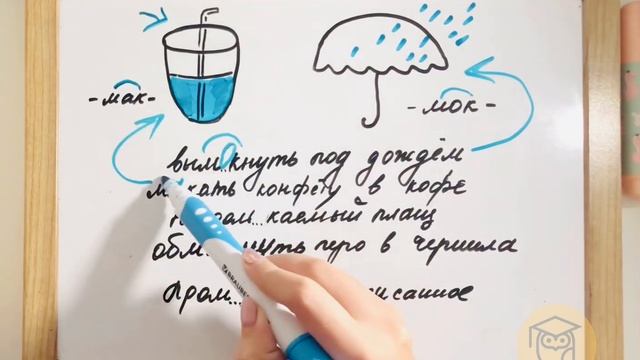 -мак-
-мок-
вым о кнуть под дождём
м кать конфету в кофе
каемый плащ
обм нуть перо в чернила
пром...
BRAUBER